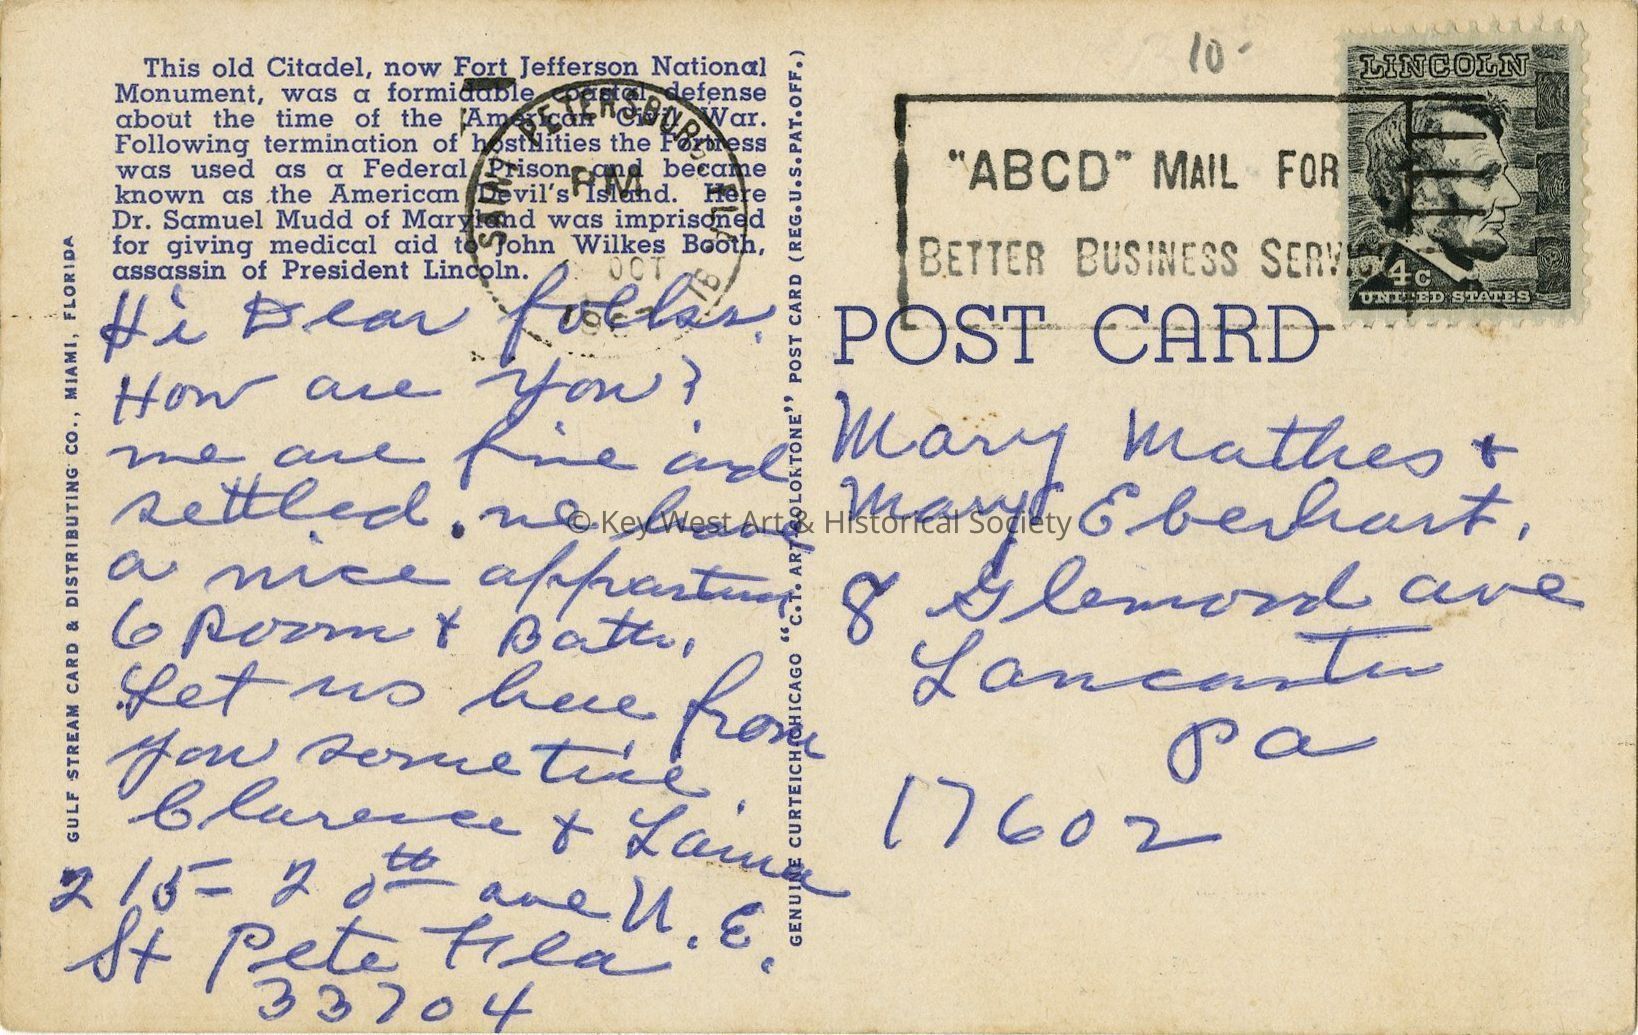 This old Citadel, now Fort Jefferson National
Monument, was a formidable coastal defense
about the time of the American Civil War.
Following termination of hostilities the Fortress
was used as a Federal Prison and became
known as the American Devil's Island. Here
Dr. Samuel Mudd of Maryland was imprisoned
for giving medical aid to John Wilkes Booth,
assassin of President Lincoln.
Hi Dear folks.
How are you?
we are fine and
settled. we have
a nice
6 Room & Bath.
Let us hear from
you sometime.
Clarence &
215 - 20th ave N.E.
St Pete Fla
33704
GULF STREAM CARD & DISTRIBUTING CO., MIAMI, FLORIDA
GENUINE CURTEICH-CHICAGO "C.T. ART-COLORTONE" POST CARD (REG. U.S. PAT. OFF.)
SAINT PETERSBURG, FLA
PM
OCT
10-
"ABCD" MAIL FOR
BETTER BUSINESS SERVICE
LINCOLN
4c
UNITED STATES
POST CARD
Mary Mathes &
Mary Eberhart.
8 ave
Lancaster
Pa
17602
© Key West Art & Historical Society